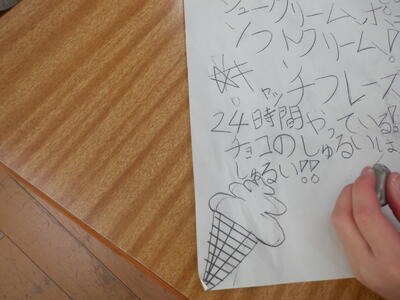 シュークリーム、ポ
ソフトクリーム、
☆キャッチフレーズ
24時間やっている!
チョコのしゅるいは
しゅるい!!